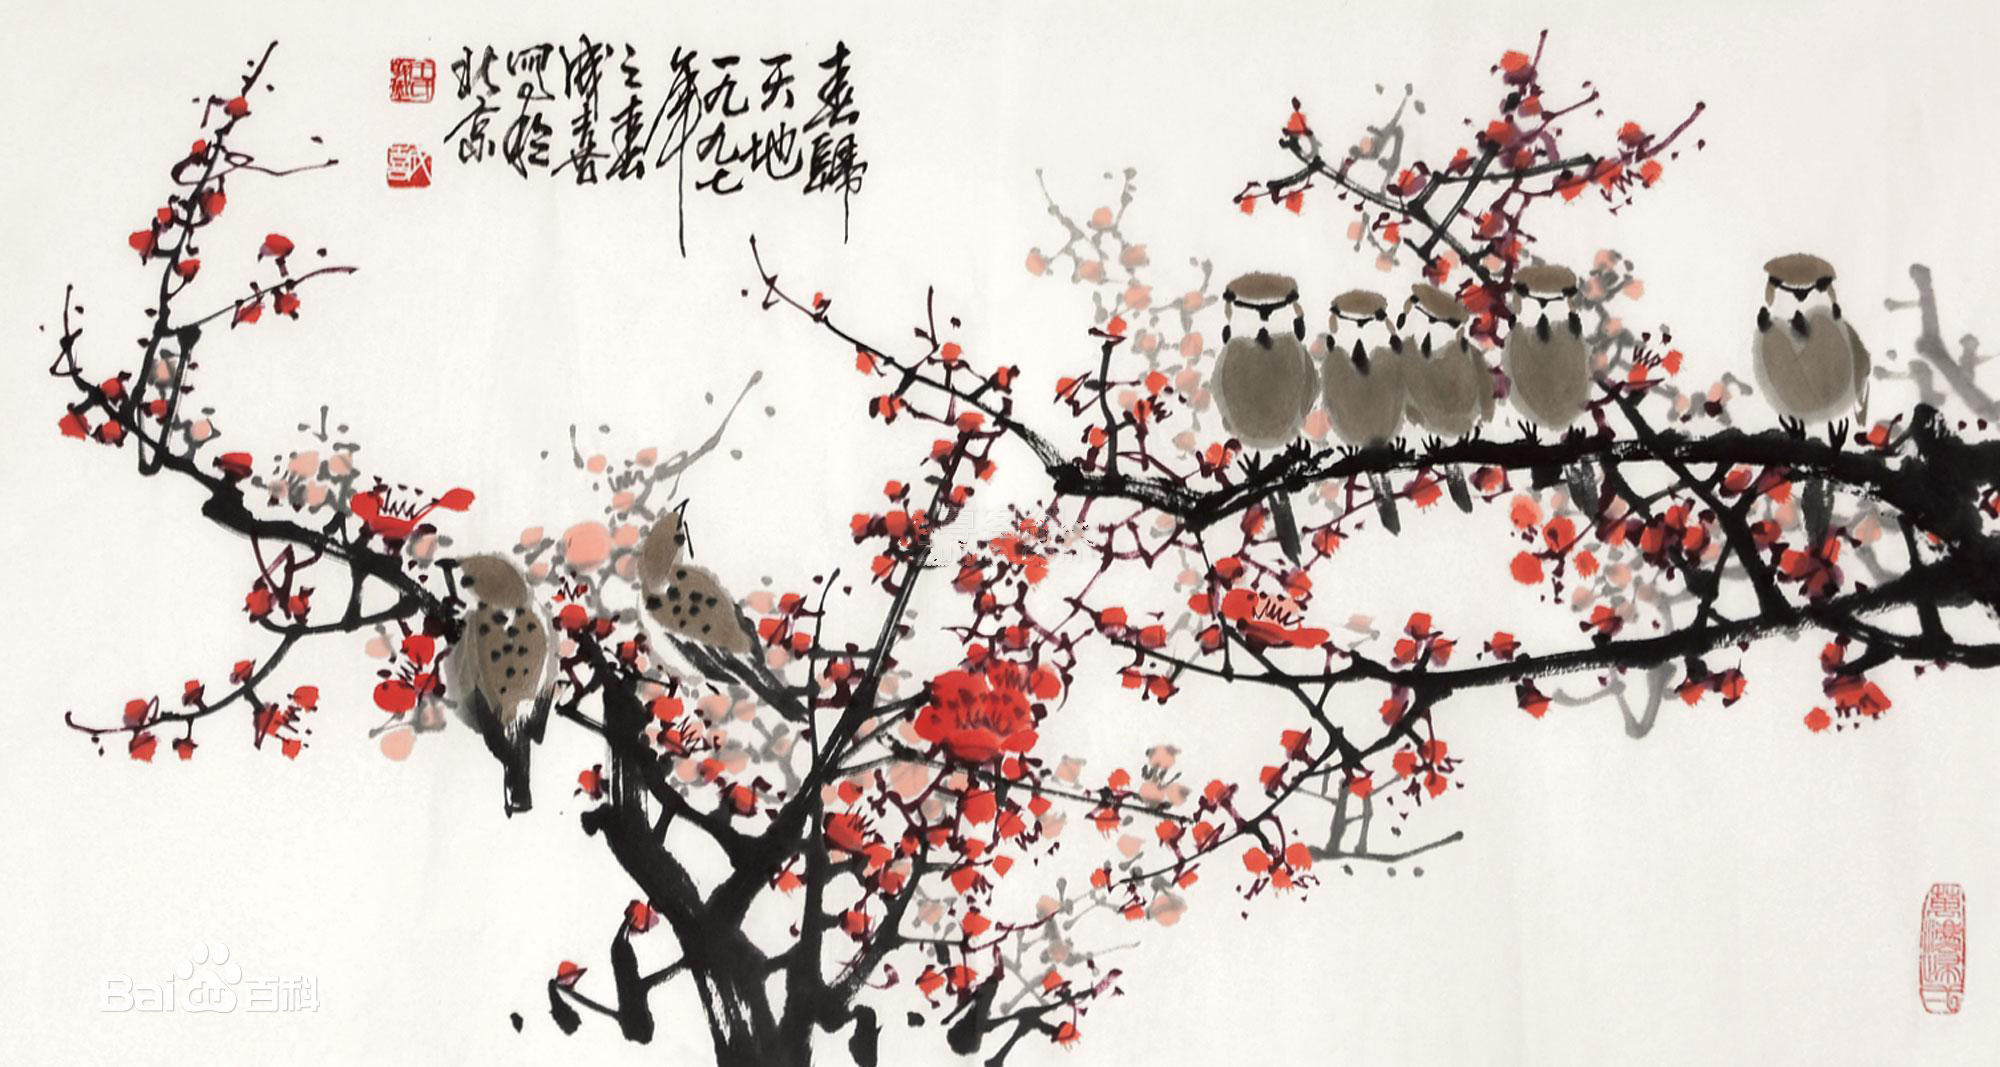 春歸
天地
一九九七
年
之春
成喜
寫於
北京
Bai 百科